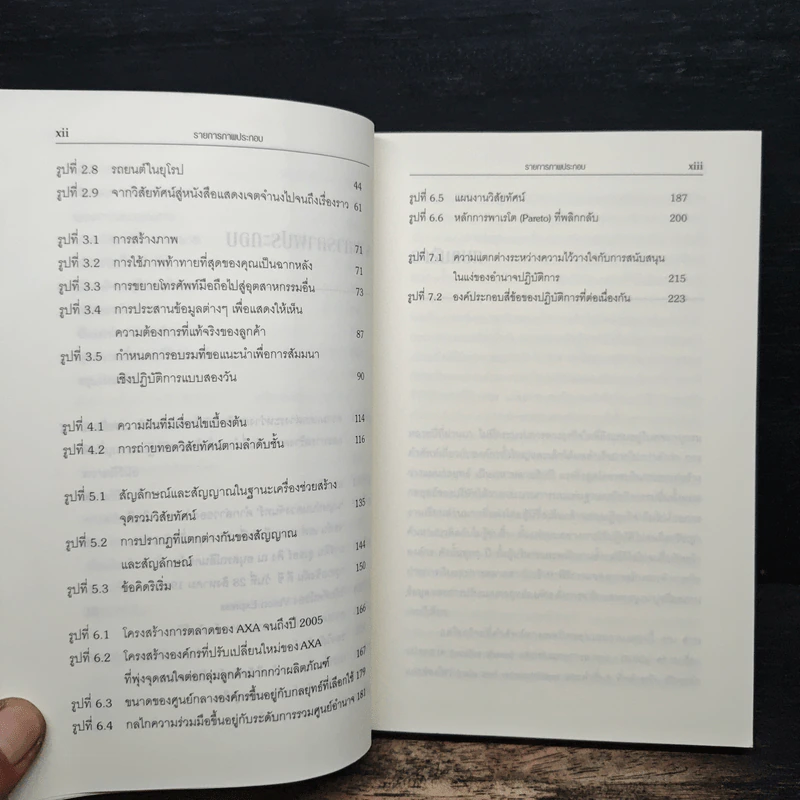 xii
รายการภาพประกอบ
รูปที่ 2.8 รถยนต์ในยุโรป 44
รูปที่ 2.9 จากวิสัยทัศน์สู่หนังสือแสดงเจตจำนงไปจนถึงเรื่องราว 61
รูปที่ 3.1 การสร้างภาพ 71
รูปที่ 3.2 การใช้ภาพท้าทายที่สุดของคุณเป็นฉากหลัง 71
รูปที่ 3.3 การขยายโทรศัพท์มือถือไปสู่อุตสาหกรรมอื่น 73
รูปที่ 3.4 การประสานข้อมูลต่างๆ เพื่อแสดงให้เห็น
ความต้องการที่แท้จริงของลูกค้า 87
รูปที่ 3.5 กำหนดการอบรมที่ขอแนะนำเพื่อการสัมมนา
เชิงปฏิบัติการแบบสองวัน 90
รูปที่ 4.1 ความฝันที่มีเงื่อนไขเบื้องต้น 114
รูปที่ 4.2 การถ่ายทอดวิสัยทัศน์ตามลำดับชั้น 116
รูปที่ 5.1 สัญลักษณ์และสัญญาณในฐานะเครื่องช่วยสร้าง
จุดรวมวิสัยทัศน์ 135
รูปที่ 5.2 การปรากฏที่แตกต่างกันของสัญญาณ
และสัญลักษณ์ 144
รูปที่ 5.3 ข้อคิดริเริ่ม 150
รูปที่ 6.1 โครงสร้างการตลาดของ AXA จนถึงปี 2005 166
รูปที่ 6.2 โครงสร้างองค์กรที่ปรับเปลี่ยนใหม่ของ AXA
ที่พุ่งจุดสนใจต่อกลุ่มลูกค้ามากกว่าผลิตภัณฑ์ 167
รูปที่ 6.3 ขนาดของศูนย์กลางองค์กรขึ้นอยู่กับกลยุทธ์ที่เลือกใช้ 179
รูปที่ 6.4 กลไกความร่วมมือขึ้นอยู่กับระดับการรวมศูนย์อำนาจ 181
รายการภาพประกอบ
xiii
รูปที่ 6.5 แผนงานวิสัยทัศน์ 187
รูปที่ 6.6 หลักการพาเรโต (Pareto) ที่พลิกกลับ 200
รูปที่ 7.1 ความแตกต่างระหว่างความไว้วางใจกับการสนับสนุน
ในแง่ของอำนาจปฏิบัติการ 215
รูปที่ 7.2 องค์ประกอบสี่ข้อของปฏิบัติการที่ต่อเนื่องกัน 223